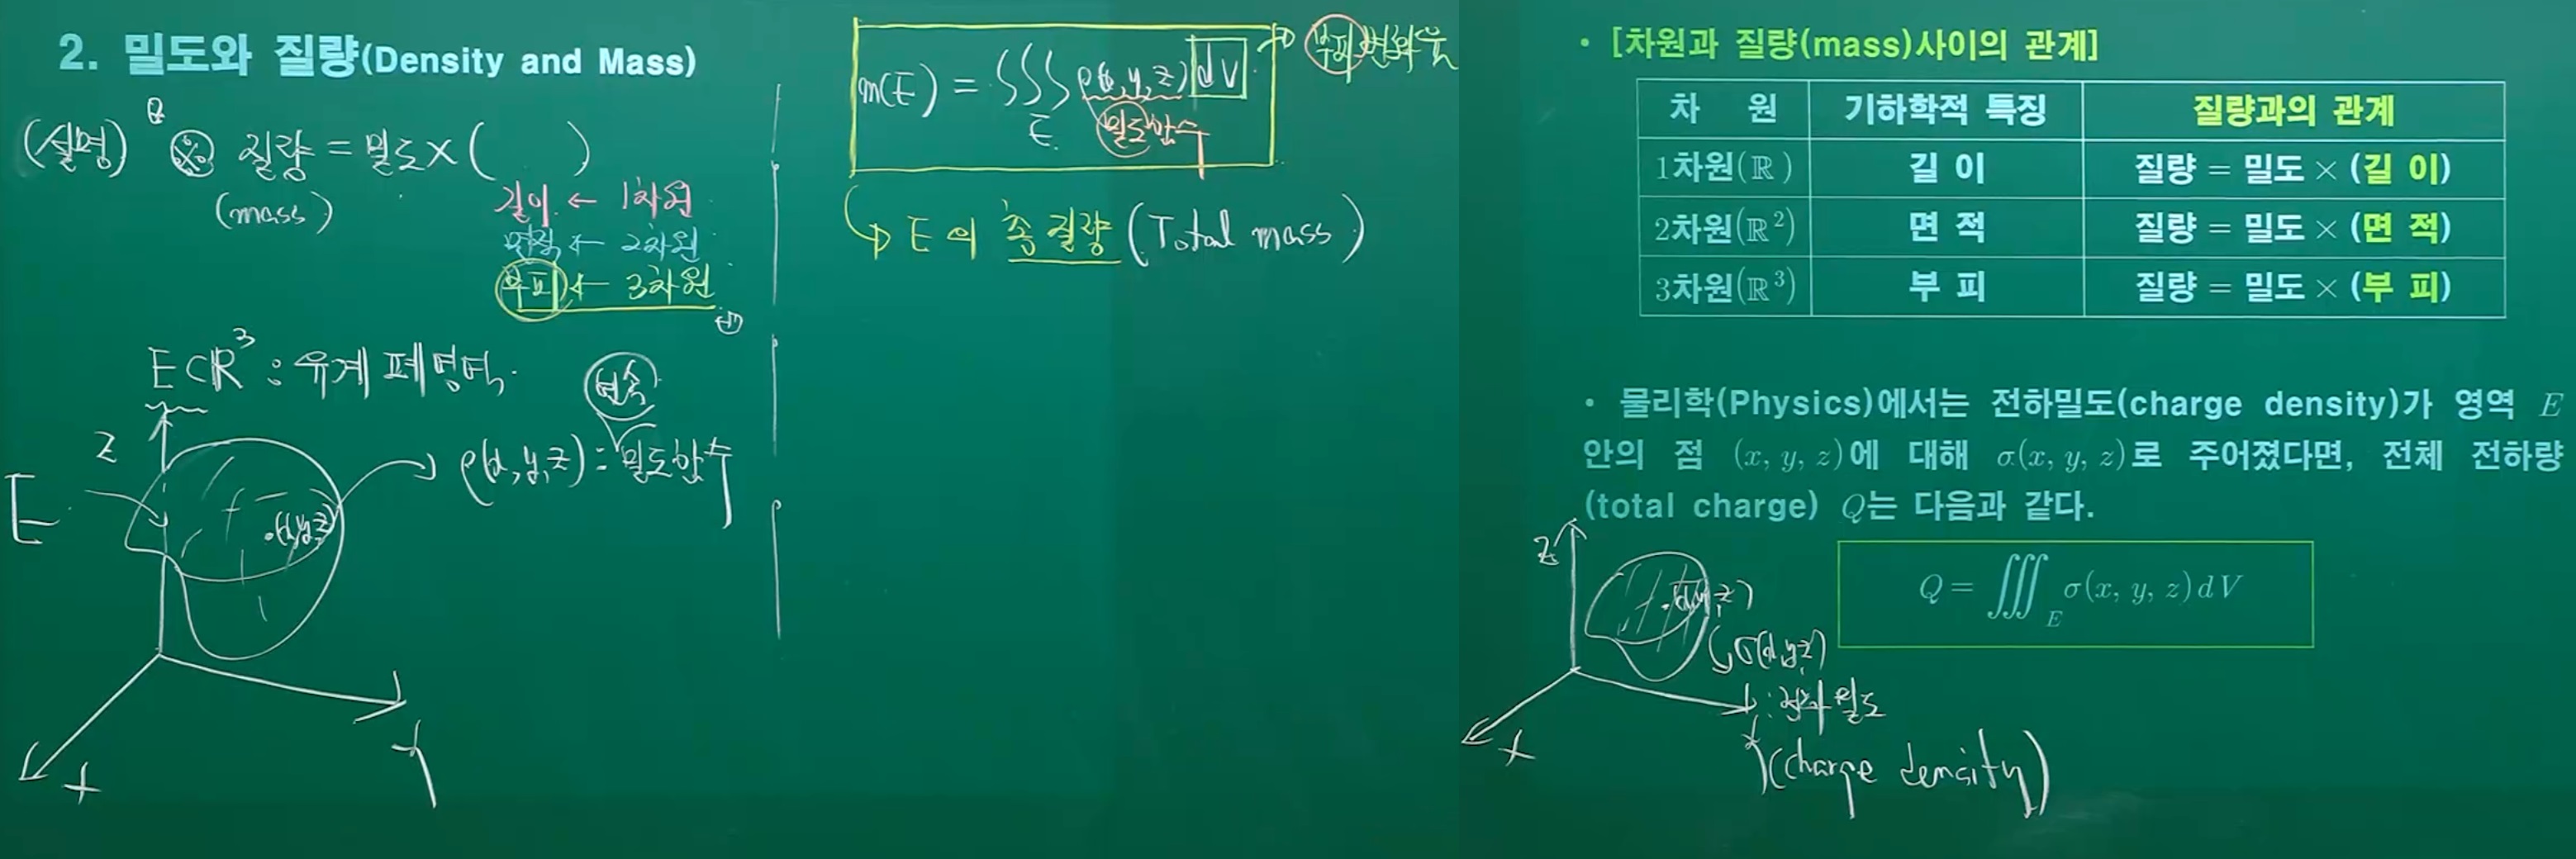 2. 밀도와 질량(Density and Mass)
(설명) ※ 질량 = 밀도 × ( )
(mass)
길이 ← 1차원
면적 ← 2차원
부피 ← 3차원
E⊂ℝ³ : 유계 폐영역.
연속
ρ(x,y,z) : 밀도함수
z
E
.(x,y,z)
x
y
m(E) = ∭_E ρ(x,y,z) dV → 부피변화율
밀도함수
↳ E의 총 질량 (Total mass)
• [차원과 질량(mass)사이의 관계]
차 원 기하학적 특징 질량과의 관계
1차원(ℝ) 길 이 질량 = 밀도 × (길 이)
2차원(ℝ²) 면 적 질량 = 밀도 × (면 적)
3차원(ℝ³) 부 피 질량 = 밀도 × (부 피)
• 물리학(Physics)에서는 전하밀도(charge density)가 영역 E
안의 점 (x, y, z)에 대해 σ(x, y, z)로 주어졌다면, 전체 전하량
(total charge) Q는 다음과 같다.
Q = ∭_E σ(x, y, z) dV
z
.(x,y,z)
σ(x,y,z)
: 전하밀도
x
y
(charge density)